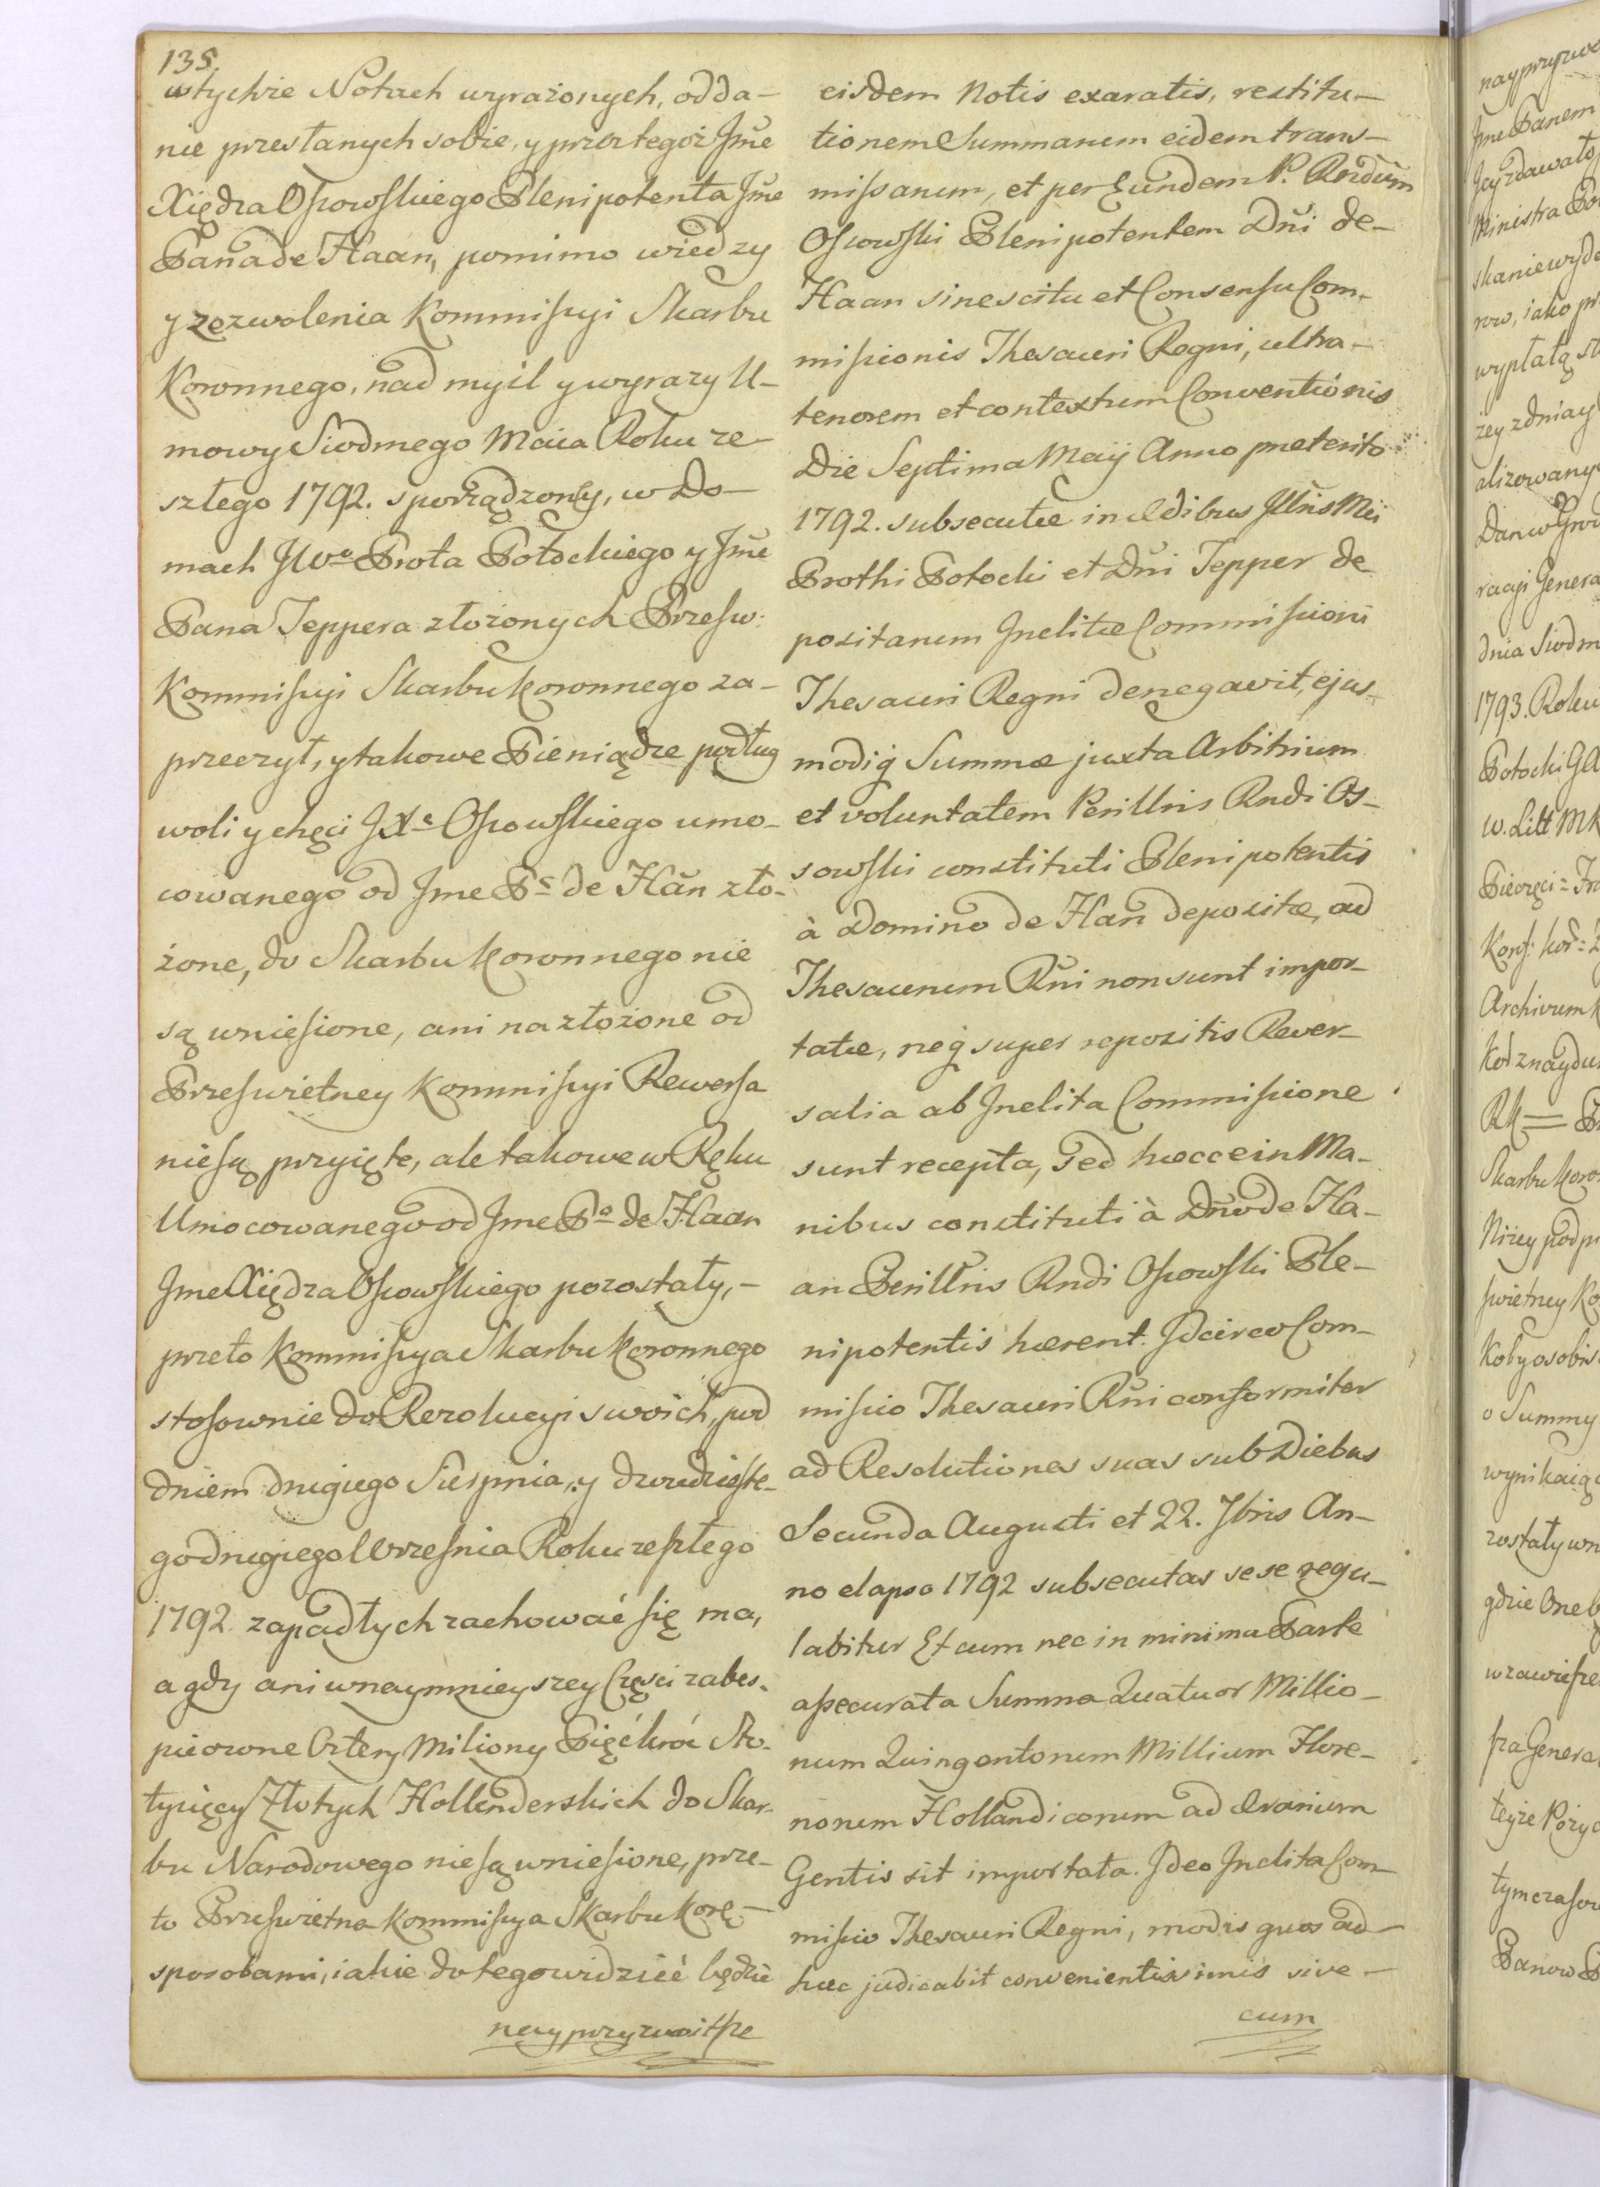 135.
wtychże Notach wyrażonych, odda-
nie przesłanych sobie, y przez tegoż Jmę
Xiędza Ossowskiego Plenipotenta Jmę
Pana de Haan, pomimo wiedzy
y zezwolenia Kommissyi Skarbu
Koronnego, nad myśl y wyrazy U-
mowy Siodmego Maia Roku ze-
szłego 1792. sporządzoney, w Do-
mach JWo Prota Potockiego y Jmę
Pana Teppera złożonych Przesw:
Kommissyi Skarbu Koronnego za-
przeczył, y takowe Pieniądze podług
woli y chęci JXa Ossowskiego umo-
cowanego od Jme Pa de Hãn zło-
żone, do Skarbu Koronnego nie
są wniesione, ani na złożone od
Przeswietney Kommissyi Rewersa
niesą przyięte, ale takowe w Ręku
Umocowanego od Jme Pa de Haan
Jme Xiędza Ossowskiego pozostały, -
przeto Kommissya Skarbu Koronnego
stosownie do Rezolucyi swoich, pod
dniem drugiego Sierpnia, y dwudzieste-
go drugiego Wrzesnia Roku zeszłego
1792. zapadłych zachować się ma,
a gdy ani w naymnieyszey Częsci zabes-
pieczone Cztery Miliony Pięćkroć Sto-
tysięcy Złotych Hollenderskich do Skar-
bu Narodowego niesą wniesione, prze-
to Przeswietna Kommissya Skarbu Korõ -
sposobami, iakie do tego widzieć będzie
nayprzyzwoitsze
eisdem Notis exaratis, restitu-
tionem Summarum eidem trans-
missarum, et per Eundem P. Rndum
Ossowski Plenipotentem Dñi de-
Haan sine scitu et Consensu Com-
missionis Thesauri Regni, ultra-
tenorem et contextum Conventionis
Die Septima Maÿ Anno præterito
1792. subsecutæ in Ædibus Jllris Mci
Prothi Potocki et Dñi Tepper de-
positarum Jnclitæ Commissioni
Thesauri Regni denegavit, ejus-
modiq Summæ juxta Arbitrium
et voluntatem Perillris Rndi Os-
sowski constituti Plenipotentis
à Domino de Hãan depositæ, ad
Thesaurum Rñi non sunt impor-
tatæ, neq super repositis Rever-
salia ab Jnclita Commissione
sunt recepta, sed hæcce in Ma-
nibus constituti à Dño de Ha-
an Perillris Rndi Ossowski Ple-
nipotentis hærent. Jdcirco Com-
missio Thesauri Rñi conformiter
ad Resolutiones suas sub Diebus
Secunda Augusti et 22. 7bris An-
no elapso 1792 subsecutas sese regu-
labitur Et cum nec in minima Parte
assecurata Summa Quatuor Millio-
num Quingentorum Millium Flore-
norum Hollandicorum ad Ærarium
Gentis sit importata. Jdeo Jnclita Com-
missio Thesauri Regni, modis quos ad-
hæc judicabit convenientissimis sive -
cum
Jme Panem
Jey zdawało
Ministra
row, iako
wypłatą
żey z dnia y
alizowany
racyi Genera
dnia Siodm
1793. Roku
Potocki GA
w. Litt MK
Pieczęci = 
Archivum
Skarbu Koro
Niżey podpi
swietney Ko
o Summy
wynikaią
zostały wn
gdzie One
teyże Pożyc
tymczasow
Panow